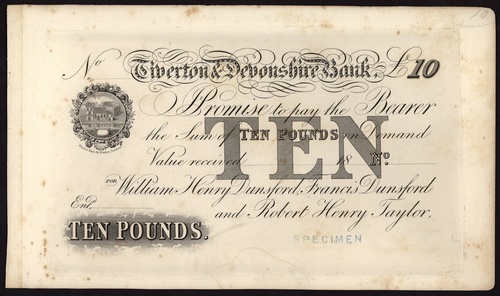 No Tiverton & Devonshire Bank. £10
I Promise to pay the Bearer
the Sum of TEN POUNDS on Demand
TEN
Value received 18 No.
FOR William Henry Dunsford, Francis Dunsford
Entd. and Robert Henry Taylor.
TEN POUNDS.
SPECIMEN